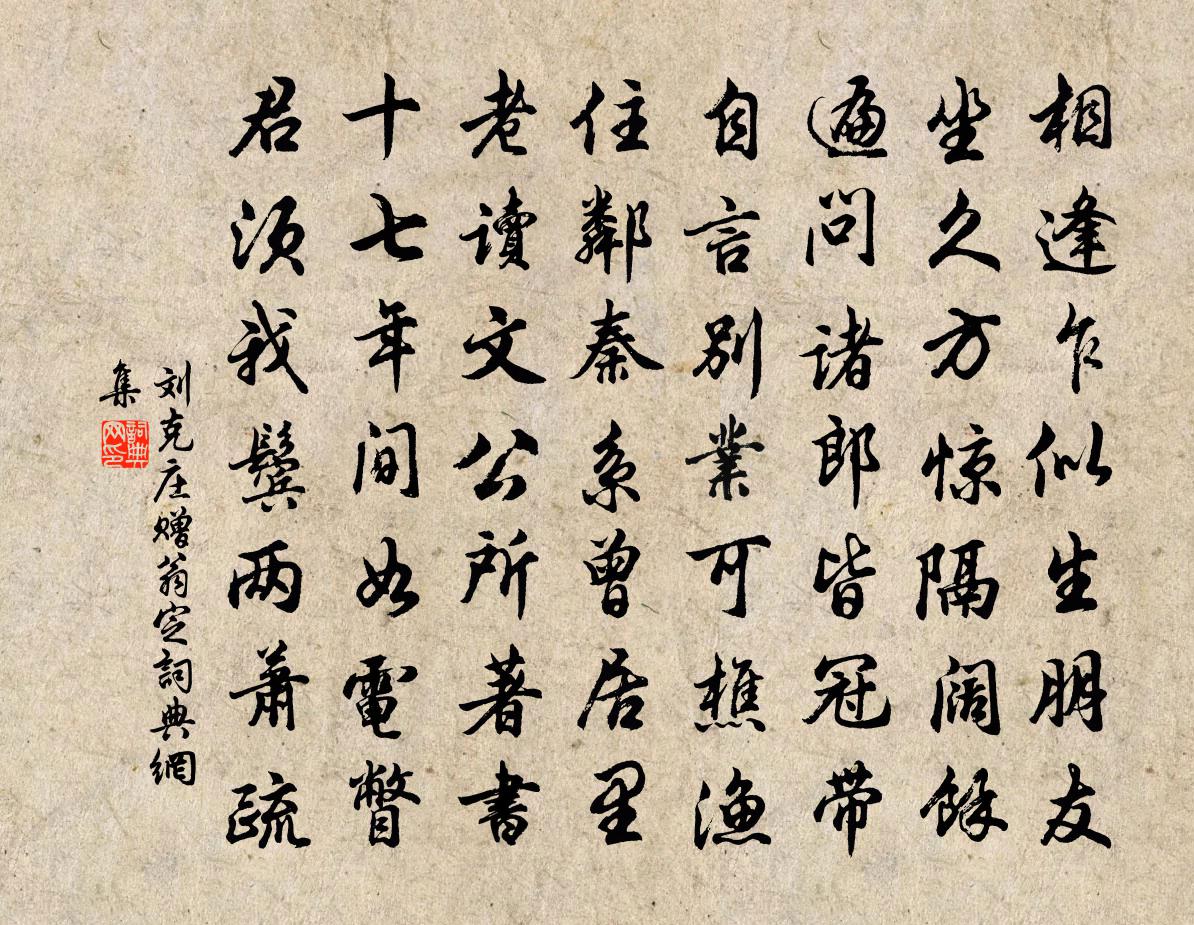 相逢乍似生朋友
坐久方惊隔阔餘
遍问諸郎皆冠带
自言别業可樵漁
住鄰秦系曾居里
老讀文公所著書
十七年间如電瞥
君须我鬓两萧疏
刘克庄赠翁定詞典網
集
詞典
网印